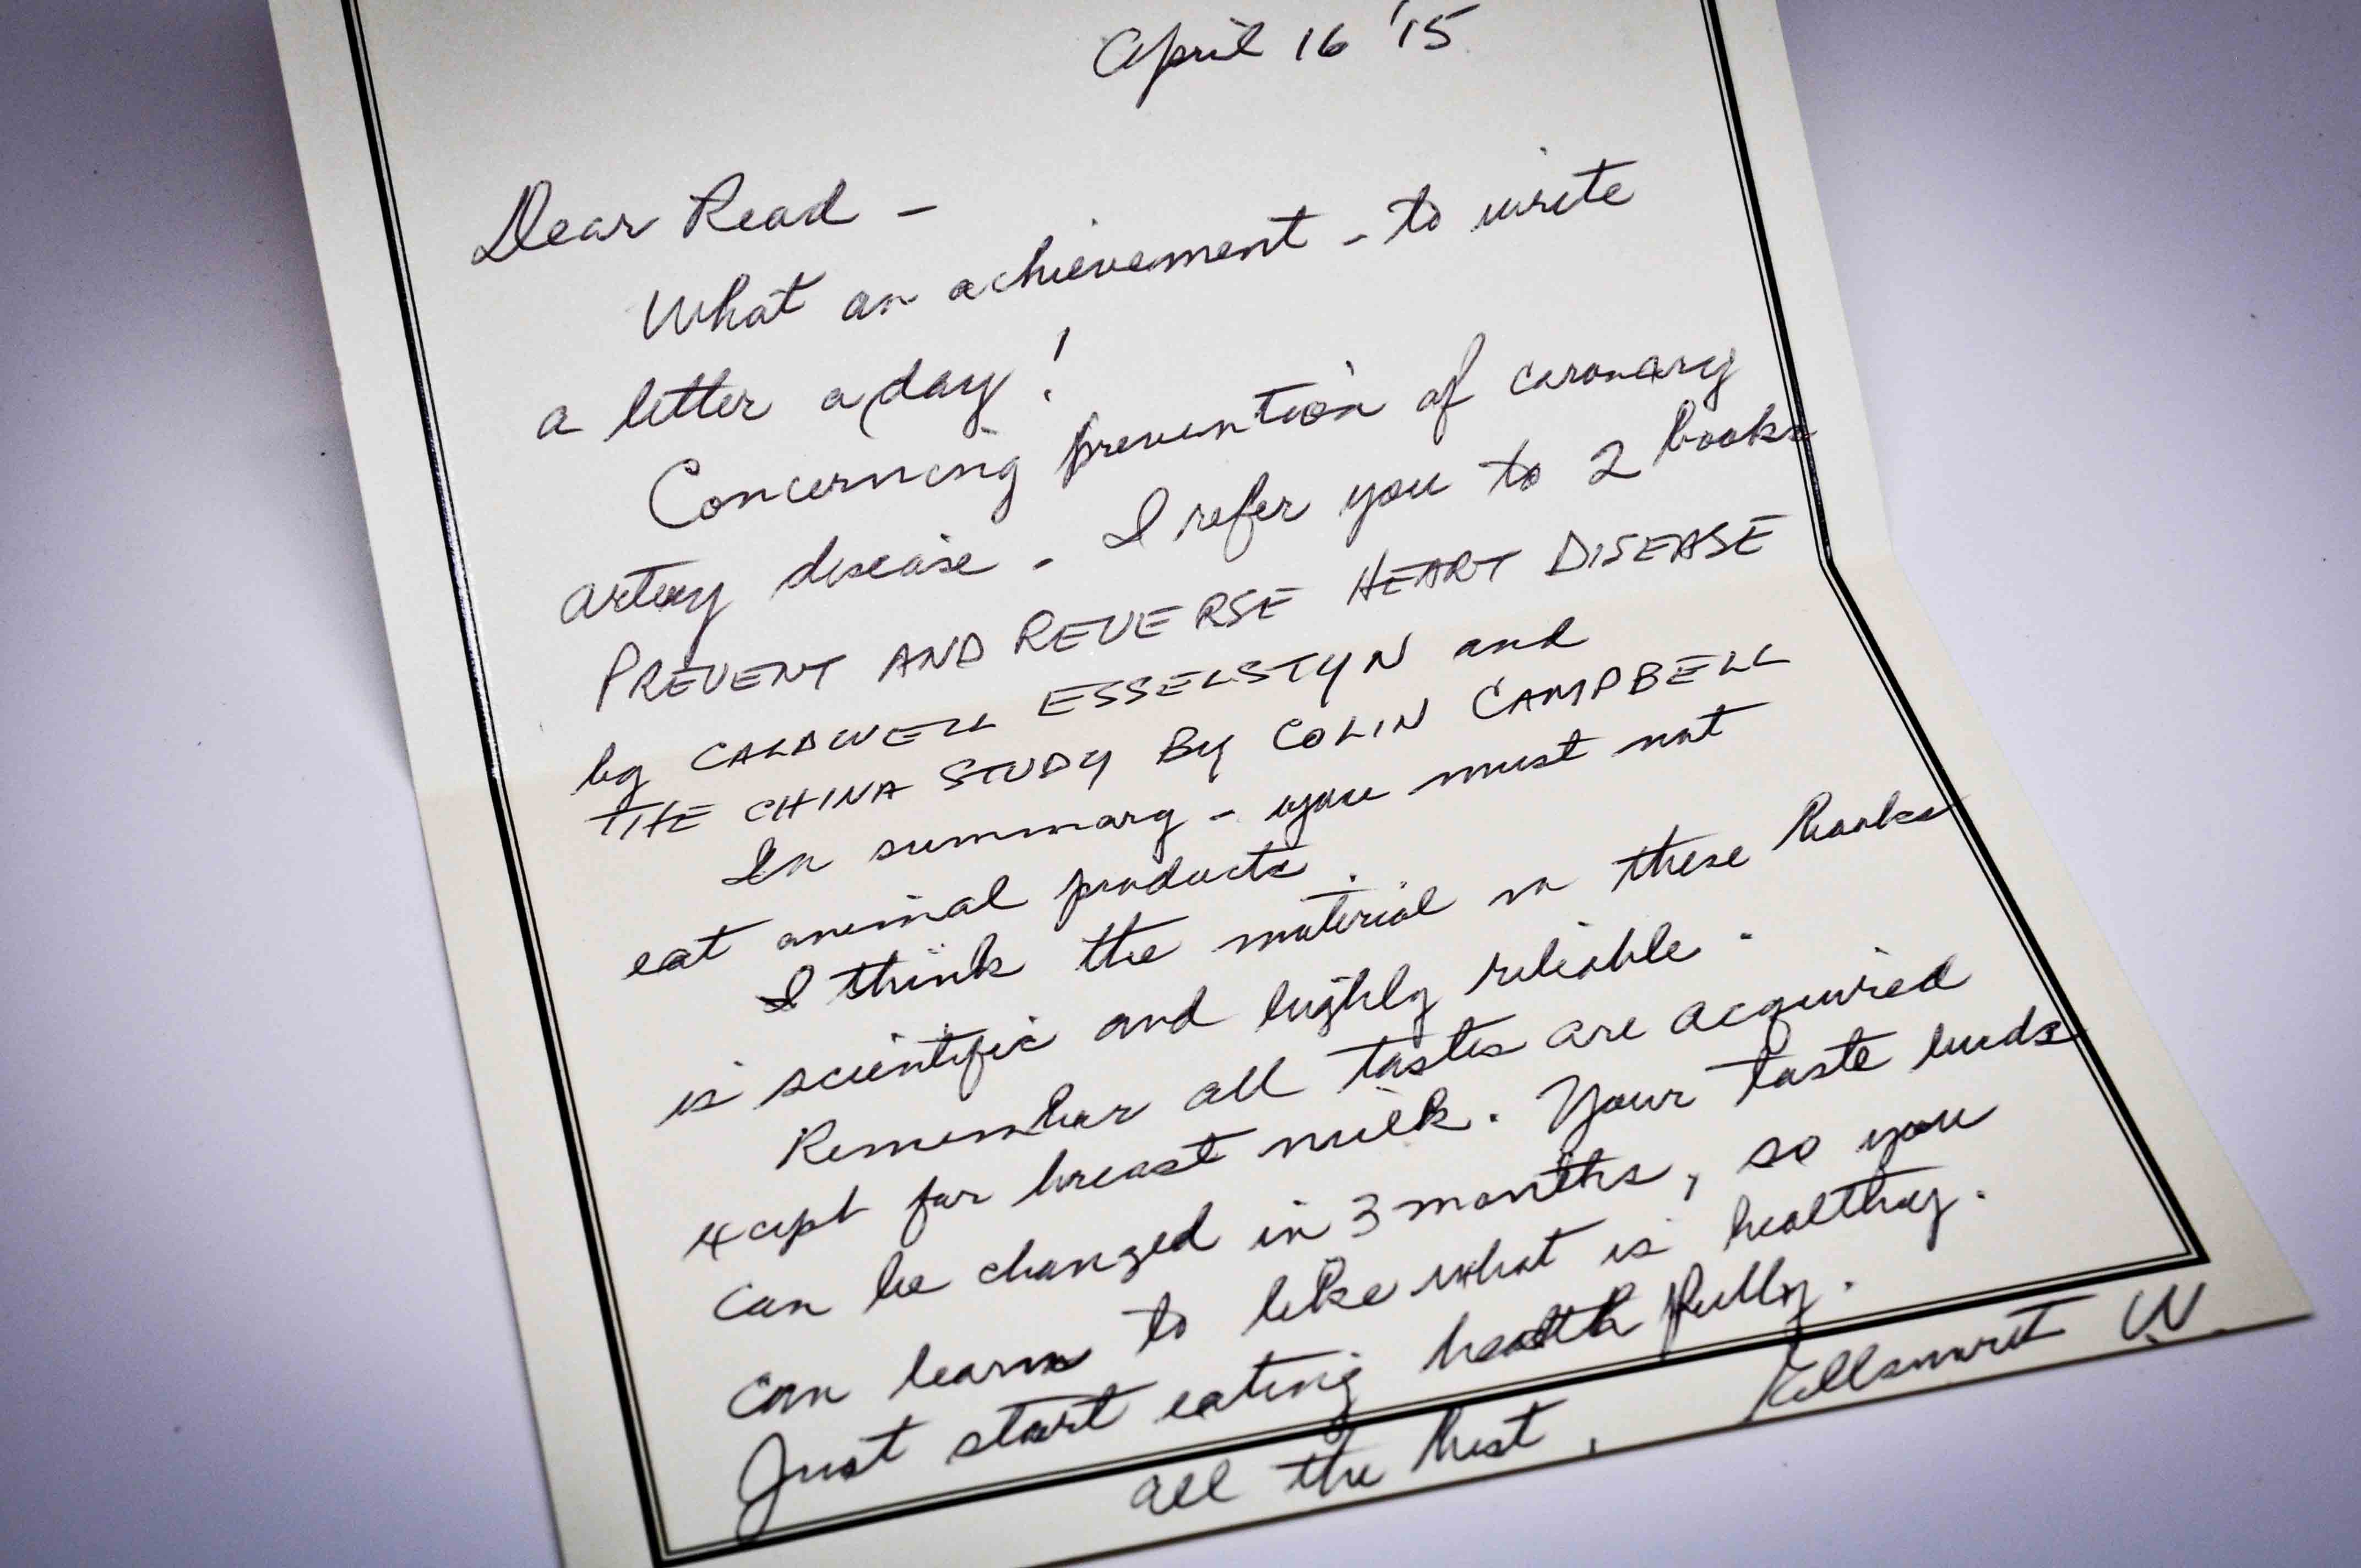 April 16 '15
Dear Read –
What an achievement – to write
a letter a day!
Concerning prevention of coronary
artery disease – I refer you to 2 books
PREVENT AND REVERSE HEART DISEASE
by CALDWELL ESSELSTYN and
THE CHINA STUDY By COLIN CAMPBELL
In summary – you must not
eat animal products.
I think the material in these books
is scientific and highly reliable.
Remember all tastes are acquired
except for breast milk. Your taste buds
can be changed in 3 months, so you
can learn to like what is healthy.
Just start eating healthfully.
All the best, Ellsworth W